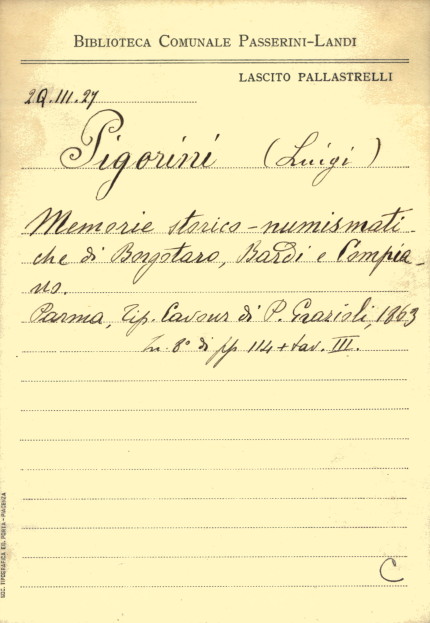 BIBLIOTECA COMUNALE PASSERINI-LANDI
LASCITO PALLASTRELLI
2Q.III.27
Pigorini (Luigi)
Memorie storico-numismati-
che di Borgotaro, Bardi e Compia-
no.
Parma, Tip. Cavour di P. Grazioli, 1863
In 8° di pp 114 + tav. III.
C
SOC. TIPOGRAFICA ED. PORTA - PIACENZA